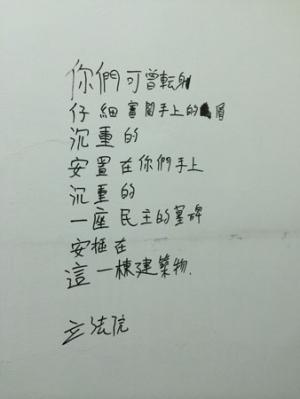 你們可曾転身
仔細審閱手上的眉
沉重的
安置在你們手上
沉重的
一座民主的墓碑
安插在
這一棟建築物.
立法院